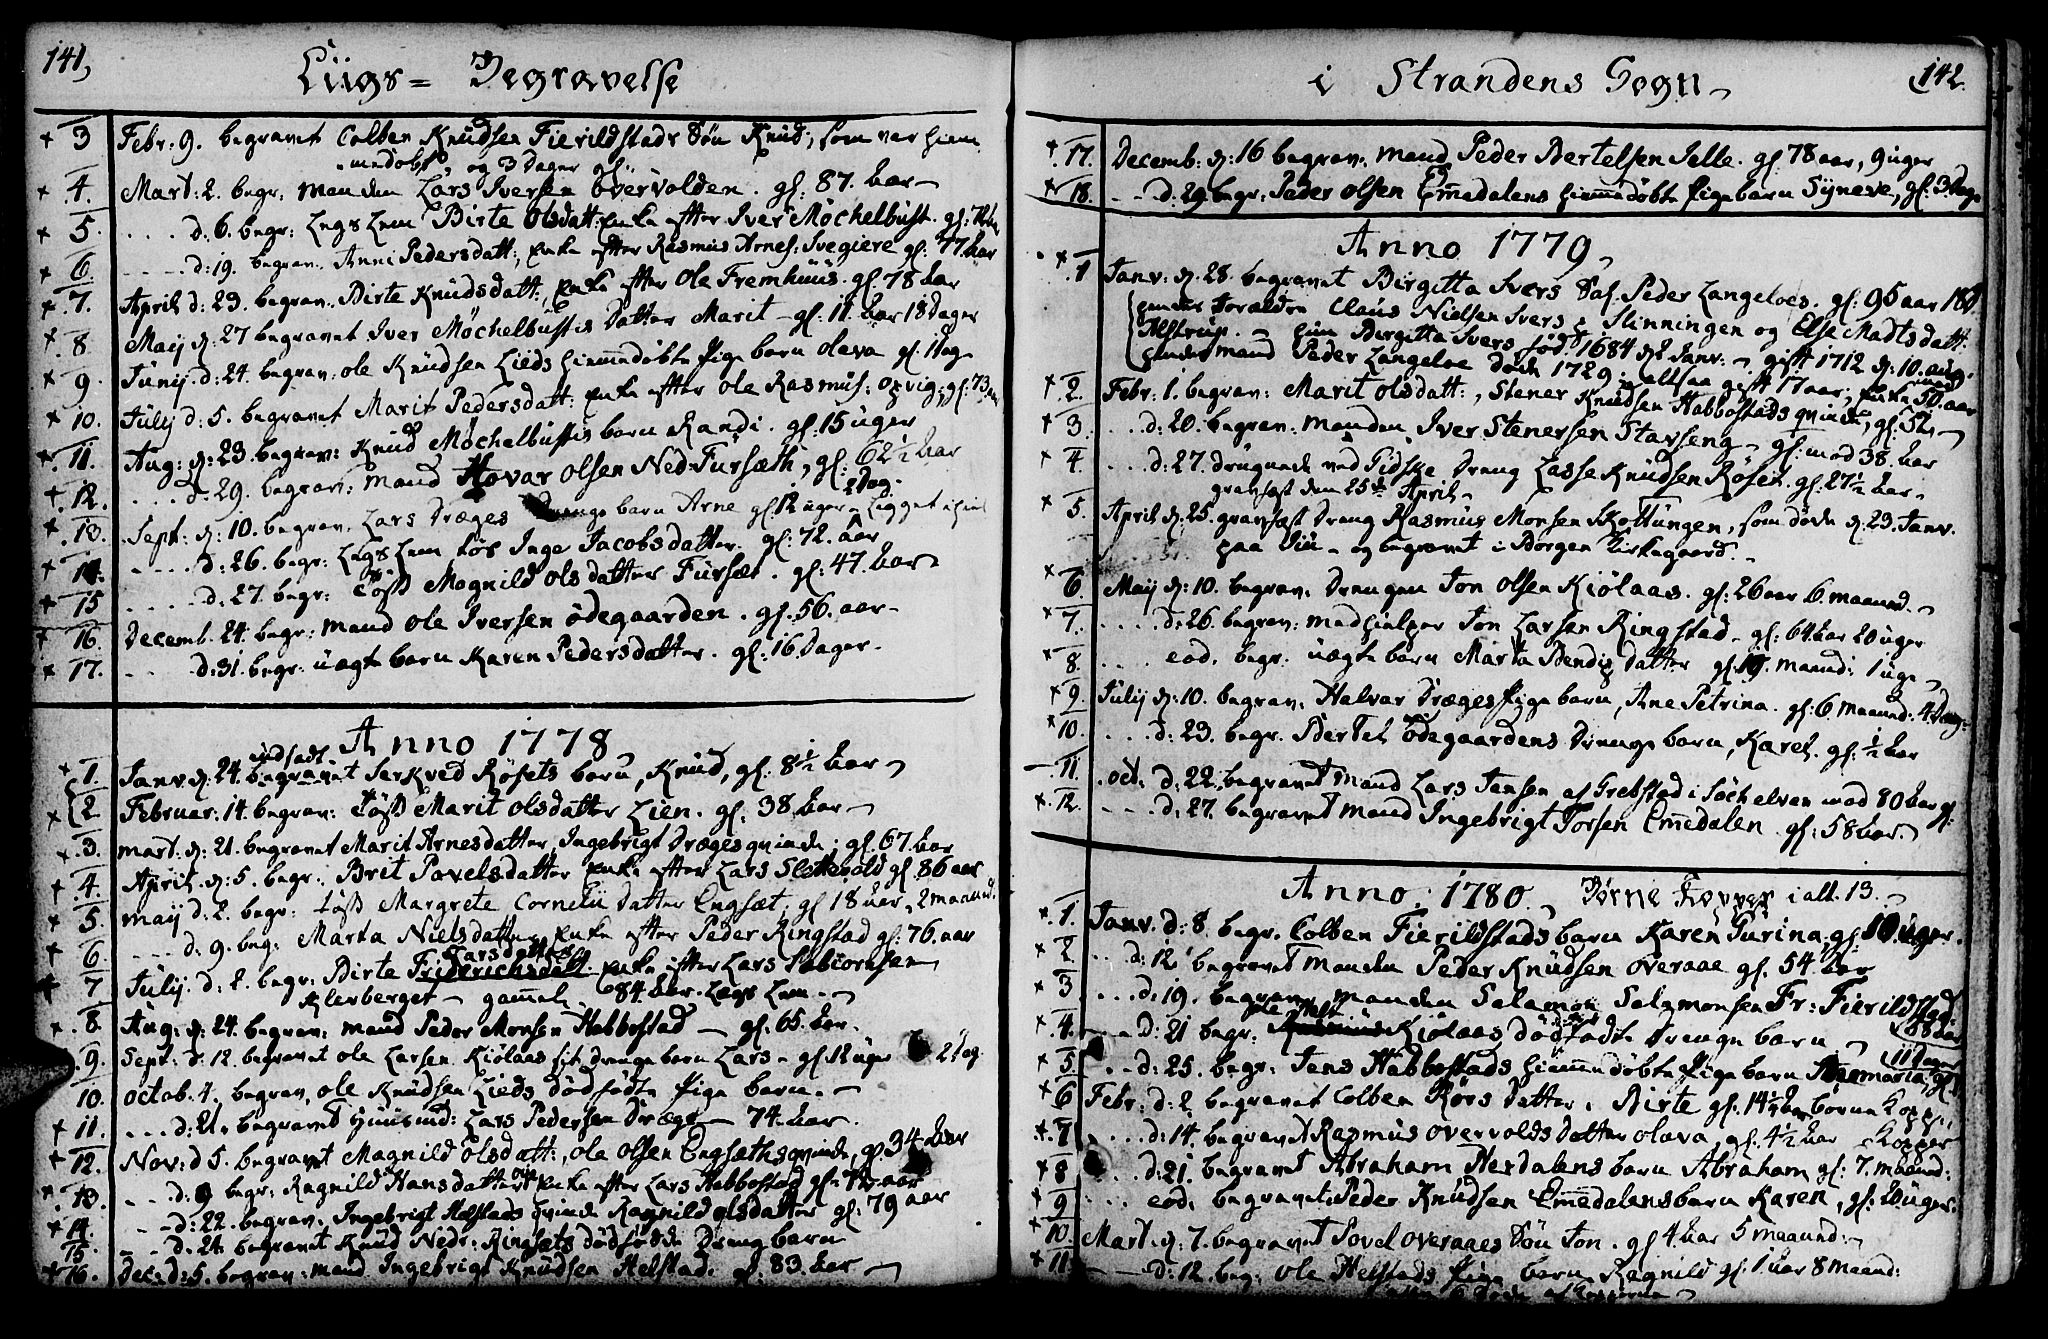 141,
Liigs = Begravelse
3 Febr: 9. begravet Colben Knudsen Fierildstads Søn Knud, som var hiem
medøbt, og 3 Dager gl:
4. Mart: 2. begr: Manden Lars Iversen Overvolden. gl: 87. Aar
5. d: 6. begr: Legs Lem Birte Olsdatt: Enke efter Iver Møchelbust. gl: 72 Aar
6. d: 19. begrav. Anne Pedersdatt:, Enke efter Rasmus Arnes: Svegiere gl: 77. Aar
7. April d: 23. begrav. Birte Knudsdatt:, Enke efter Ole Fremhuus. gl: 78 Aar
8 Maij d: 27 begravet Iver Møchelbusts Datter Marit - gl: 11. Aar 18 Dager
9. Junij. d: 24. begrav: Ole Knudsen Lieds hiemmedøbte Pige barn Oleva gl. 1 Dag
10. Julij d: 5. begravet Marit Pedersdatt: Enke efter Ole Rasmus: Opvig, gl: 73 Aar
11. Aug: d: 23. begrav: Knud Møchelbusts barn Randi. gl. 15 uger
12. d. 29. begrav: Mand Hovar Olsen Ned-Fursæth, gl: 62 1/2 Aar
13. Sept: d: 10. begrav. Lars Dræges Drenge barn Arne gl. 12 uger 2 Dag.
14. d: 26. begr: Legs Lem Løs Inge Jacobsdatter. gl: 72. Aar
15 d: 27. begr: Løss Magnild Olsdatter Fursæt. gl: 47. Aar
16. Decemb. 24. begr: Mand Ole Iversen Ødegaarden. gl. 56. aar
17. d: 31. begr: uægte barn Karen Pedersdatter. gl: 16. Dager
Anno 1778
udsadt
1. Janv. d: 24. begravet Serkved Røsets barn, Knud, gl: 8 1/2 Aar
2. Februar: 14. begrav: Løss Marit Olsdatter Lien. gl: 38. Aar
3. Mart: d: 21. begravet Marit Arnesdatter, Ingebrigt Dræges qvinde; gl. 67. Aar
4. April d: 5. begr: Brit Povelsdatter Enke efter Lars Slettevold gl. 86 aar
5 Maij d: 2. begr: Løss Margrete Cornelii Datter Engsæt, gl 18 aar, 2 maaned.
6. d. 9. beg: Marta Nielsdatter Enke efter Peder Ringstad gl: 76. aar
Larsdatter
7 Julij. d: 2. begr: Birte Friderichsdatt Enke efter Lars Tobiornsen
Klerberget gammel 84 Aar. Legs Lem.
8. Aug: d: 24. begrav: Mand Peder Monsen Habbostad gl: 65. Aar.
9. Sept: d: 12. begravet Ole Larsen Kiølaas sit Drenge barn Lars gl: 12 uger 2 Dag
10. Octob. 4. begrav. Ole Knudsen Lieds dødfødte Pige barn.
11. d: 21. begravet Huusmd: Lars Pedersen Dræge 74. Aar.
12. Nov: d 5. begravet Magnild Olsdatt:, Ole Olsen Engsæths qvinde, gl 34 Aar
13. d. 9 begr: Ragnild Hansdatter Enke efter Lars Habbostad gl: 72 aar
14. d: 22. begrav. Ingebrigt Helstads qvinde Ragnild Olsdatter gl: 79 aar
15. d. 24. begravet Knud Nedr: Ringsæts dødfødde Drengbarn
16. Dec: d: 5. begrav: Mand Ingebrigt Knudsen Helstad. gl: 83. Aar
i Strandens Sogn
142
17. Decemb: d: 16 begrav. Mand Peder Bertelsen Selle. gl 78 aar, 9 uger
18. d: 29. begr: Peder Olsen Emmedalens hiemmedøbte Pige barn Synneve, gl: 3 Dage
Anno 1779
1 Janv: d. 28. begravet Birgitta Ivers Sal. Peder Langeloes. gl: 95 aar
hendes Forældre Claus Nielsen Ivers Slinningen og Else Madtsdatt:
Alstrup. hun Birgitta Ivers fød 1684 d 2 Janv. gift 1712 d: 10. aug.
hendes mand Peder Langeloe døde 1729. altsaa gift 17 aar, Enke 50. aar
2. Febr: 1. begrav: Marit Olsdatt:, Stener Knudsen Habbostads qvinde, gl: 52.
3. d: 20. begrav: Manden Iver Stenersen Stavseng gl: mod 38. Aar
4. d: 27. druknede ved Fidske Dreng Lasse Knudsen Røset. gl. 27 1/2 Aar.
gravsæt den 25de April.
5. April d: 25. gravsæt Dreng Rasmus Monsen Skottungen, som døde d: 23. Janv.
paa og begravet i Borgen Kirkegaard.
6. Maij d: 10. begrav. Drengen Jon Olsen Kiølaas. gl: 26 aar 6 maaned.
7. d: 26. begrav: medhielper Jon Larsen Ringstad gl: 64 Aar 20 uger
8. eod. begr. uægte barn Marta Bendixdatter gl: 19. maaned: 1 uge
9. Julij d: 10. begrav. Halvar Dræges Pige barn, Ane Petrina. gl: 6. maaned: 4 Dage:
10. d: 23. begr. Bertel Ødegaardens Drenge barn, Karel. gl: 1/2 Aar
11. Oct. d: 22. begravet mand Lars Jensen af Grebstad i Søchelven mod 80 Aar gl:
12. d: 27. begravet Mand Ingebrigt Torsen Emmedalen gl: 58 Aar.
Anno 1780 Børne Kopper i alt. 13.
1. Janv. d: 8. begr. Colben Fierildstads barn Karen Turina, gl: 10 uger.
2. d: 12 begravet Manden Peder Knudsen Overaae gl: 54. Aar
3 d: 19. begrav. Manden Salamon Salamonsen Fr: Fierildstad 88 Aar
4. d: 21 begr: Rasmus Kiølaas dødfødte Drenge barn
5. d: 25. begr: Jens Habbostads hiemmedøbte Pige barn Anemaria, gl 11 Dage
6 Febr: d: 2. begravet Colben Rørs Datter. Birte gl: 14 1/2 Aar børne Kopp:
7 d: 14. begravet Rasmus Overvolds Datter Olava, gl: 4 1/2 Aar Kopper
8 d: 21. begravet Abraham Herdalens barn Abraham gl: 7. maaned:
9 eod. begravet Peder Knudsen Emmedalens barn Karen, gl: 20 uger.
10. Mart. d: 7. begravet Povel Overaaes Søn Jon. gl 4. Aar 5 maaned:
11 d: 12. beg: Ole Helstads Pige barn Ragnild gl: 1 aar 8 maaned: